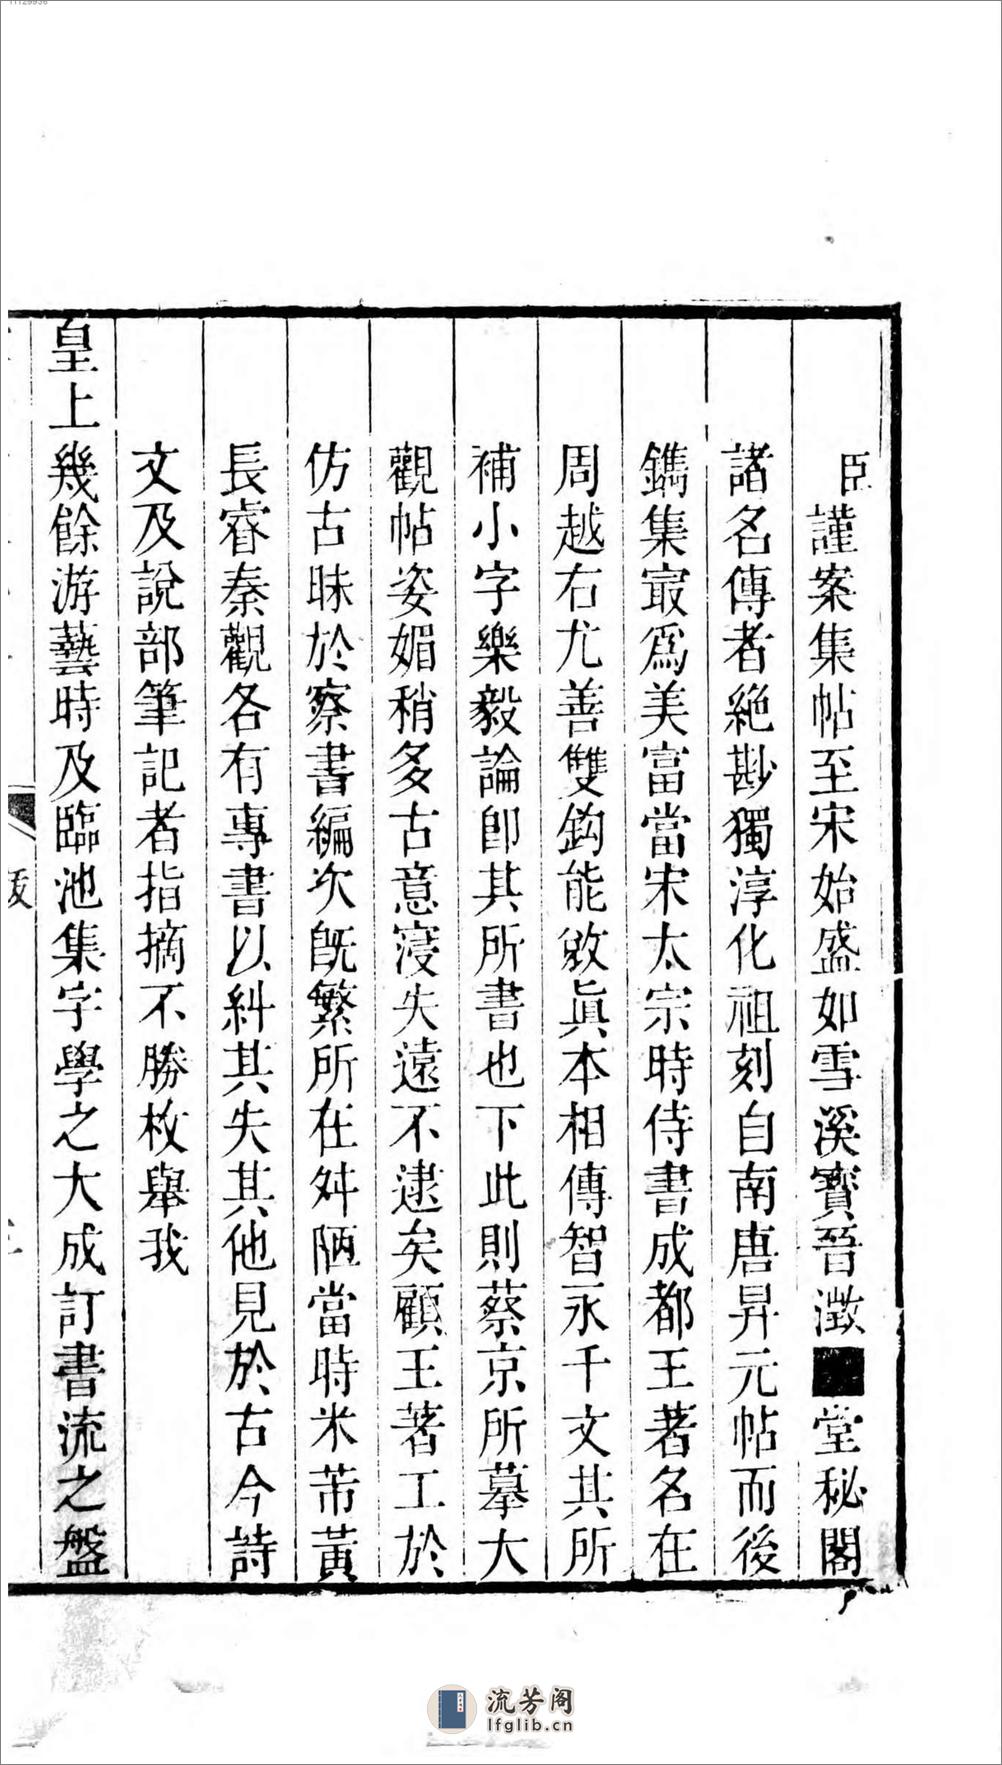 臣謹案集帖至宋始盛如雪溪寶晉澂■堂秘閣
諸名傳者絶尠獨淳化祖刻自南唐昇元帖而後
鐫集㝡爲美富當宋太宗時侍書成都王著名在
周越右尤善雙鈎能敚眞本相傳智永千文其所
補小字樂毅論卽其所書也下此則蔡京所摹大
觀帖姿媚稍多古意寖失遠不逮矣顧王著工於
仿古昧於察書編次旣繁所在舛陋當時米芾黃
長睿秦觀各有專書以糾其失其他見於古今詩
文及說部筆記者指摘不勝枚舉我
皇上幾餘游藝時及臨池集字學之大成訂書流之盤
流芳阁
lfglib.cn
11129936